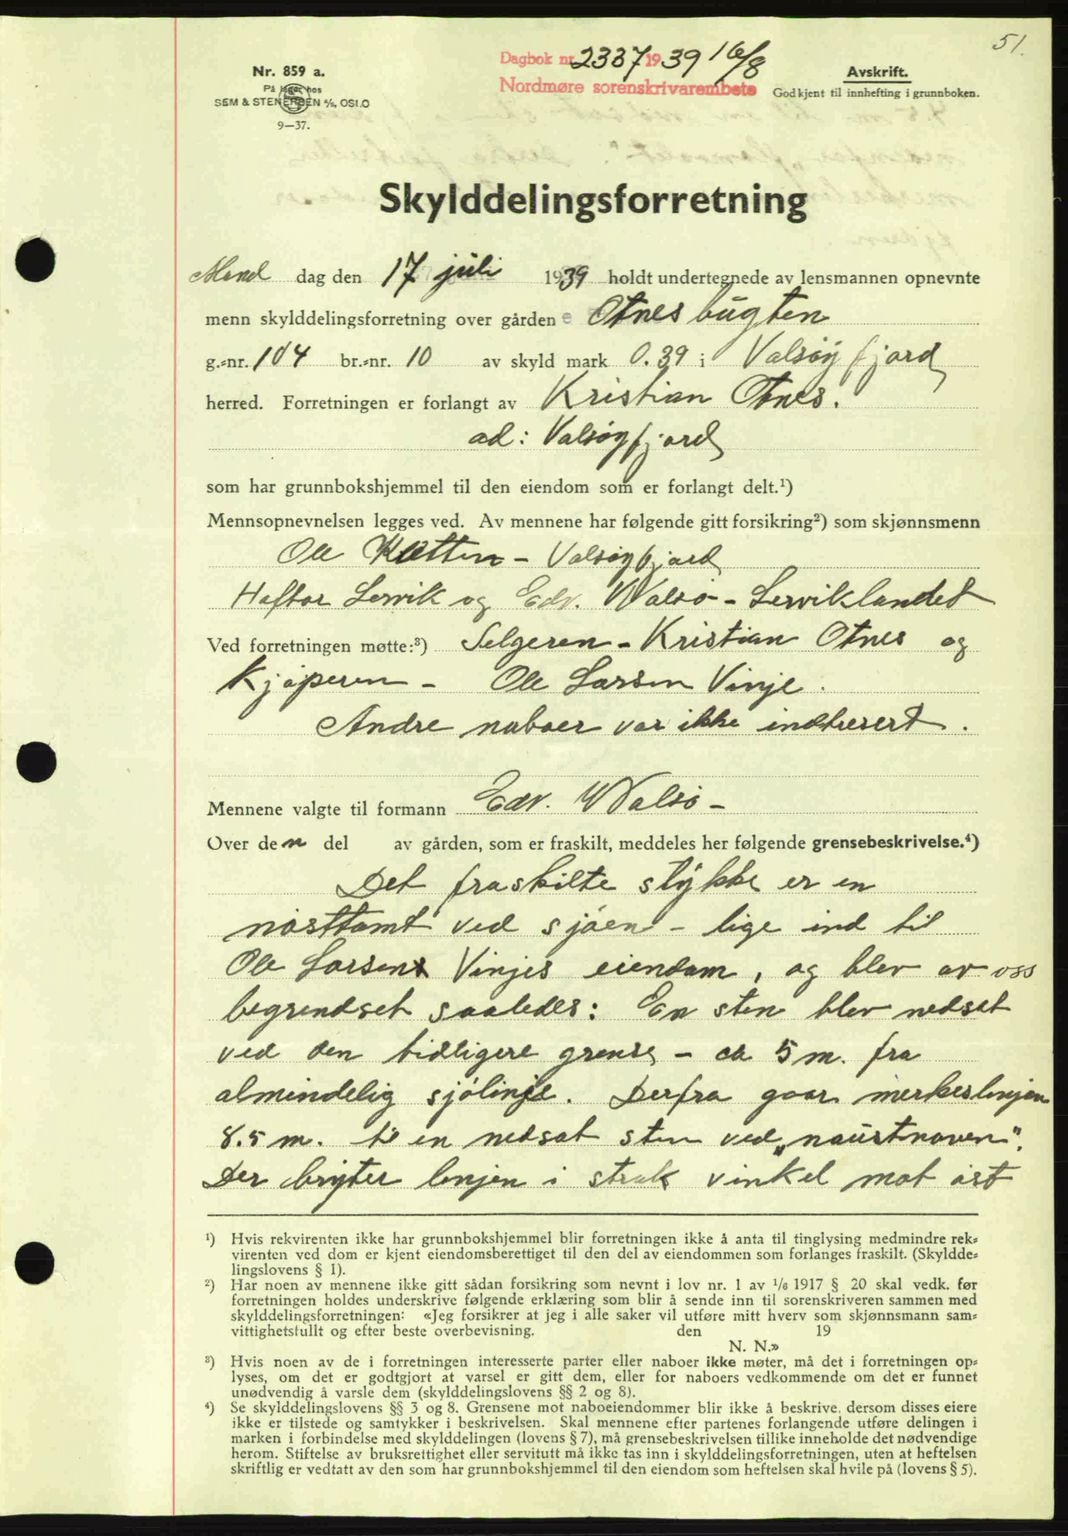 51.
Dagbok nr. 2337 1939 16/8
Nordmøre sorenskrivarembete
Nr. 859 a.
På lager hos
SEM & STENERSEN A/S, OSLO
9—37.
Avskrift.
Godkjent til innhefting i grunnboken.
Skylddelingsforretning
Mand dag den 17 juli 1939 holdt undertegnede av lensmannen opnevnte
menn skylddelingsforretning over gården Otnesbugten
g.-nr. 104 br.-nr. 10 av skyld mark 0.39 i Valsøyfjord
herred. Forretningen er forlangt av Kristian Otnes.
ad: Valsøyfjord
som har grunnbokshjemmel til den eiendom som er forlangt delt.¹)
Mennsopnevnelsen legges ved. Av mennene har følgende gitt forsikring²) som skjønnsmenn
Ole - Valsøyfjord
Haftor Lervik og Edv. Walsø - Lerviklandet
Ved forretningen møtte:³) Selgeren - Kristian Otnes og
Kjøperen - Ole Larsen Vinje.
Andre naboer var ikke indtresert.
Mennene valgte til formann Edv. Walsø -
Over den del av gården, som er fraskilt, meddeles her følgende grensebeskrivelse.⁴)
Det fraskilte stykke er en
nøsttomt ved sjøen - lige ind til
Ole Larsens Vinjes eiendom, og blev av oss
begrendset saaledes: En sten blev nedsat
ved den tidligere grense - ca 5 m. fra
almindelig sjølinje. Derfra gaar merkeslinjen
8.5 m. til en nedsat sten ved „naustnoven".
Der bryter linjen i strak vinkel mot øst
¹) Hvis rekvirenten ikke har grunnbokshjemmel blir forretningen ikke å anta til tinglysing medmindre rek-
virenten ved dom er kjent eiendomsberettiget til den del av eiendommen som forlanges fraskilt. (Skyldde-
lingslovens § 1).
²) Har noen av mennene ikke gitt sådan forsikring som nevnt i lov nr. 1 av 1/6 1917 § 20 skal vedk. før
forretningen holdes underskrive følgende erklæring som blir å sende inn til sorenskriveren sammen med
skylddelingsforretningen: «Jeg forsikrer at jeg i alle saker vil utføre mitt hverv som skjønnsmann sam-
vittighetsfullt og efter beste overbevisning. den 19
N. N.»
³) Hvis noen av de i forretningen interesserte parter eller naboer ikke møter, må det i forretningen op-
lyses, om det er godtgjort at varsel er gitt dem, eller for naboers vedkommende om det er funnet
unødvendig å varsle dem (skylddelingslovens §§ 2 og 8).
⁴) Se skylddelingslovens §§ 3 og 8. Grensene mot naboeiendommer blir ikke å beskrive, dersom disses eiere
ikke er tilstede og samtykker i beskrivelsen. Skal mennene efter partenes forlangende utføre delingen i
marken i forbindelse med skylddelingen (lovens § 7), må grensebeskrivelsen tillike inneholde det nødvendige
herom. Stiftelse av bruksrettighet eller servitutt må ikke tas inn i skylddelingsforretningen, uten at heftelsen
skriftlig er vedtatt av den som har grunnbokshjemmel til den eiendom som heftelsen skal hvile på (lovens § 5).